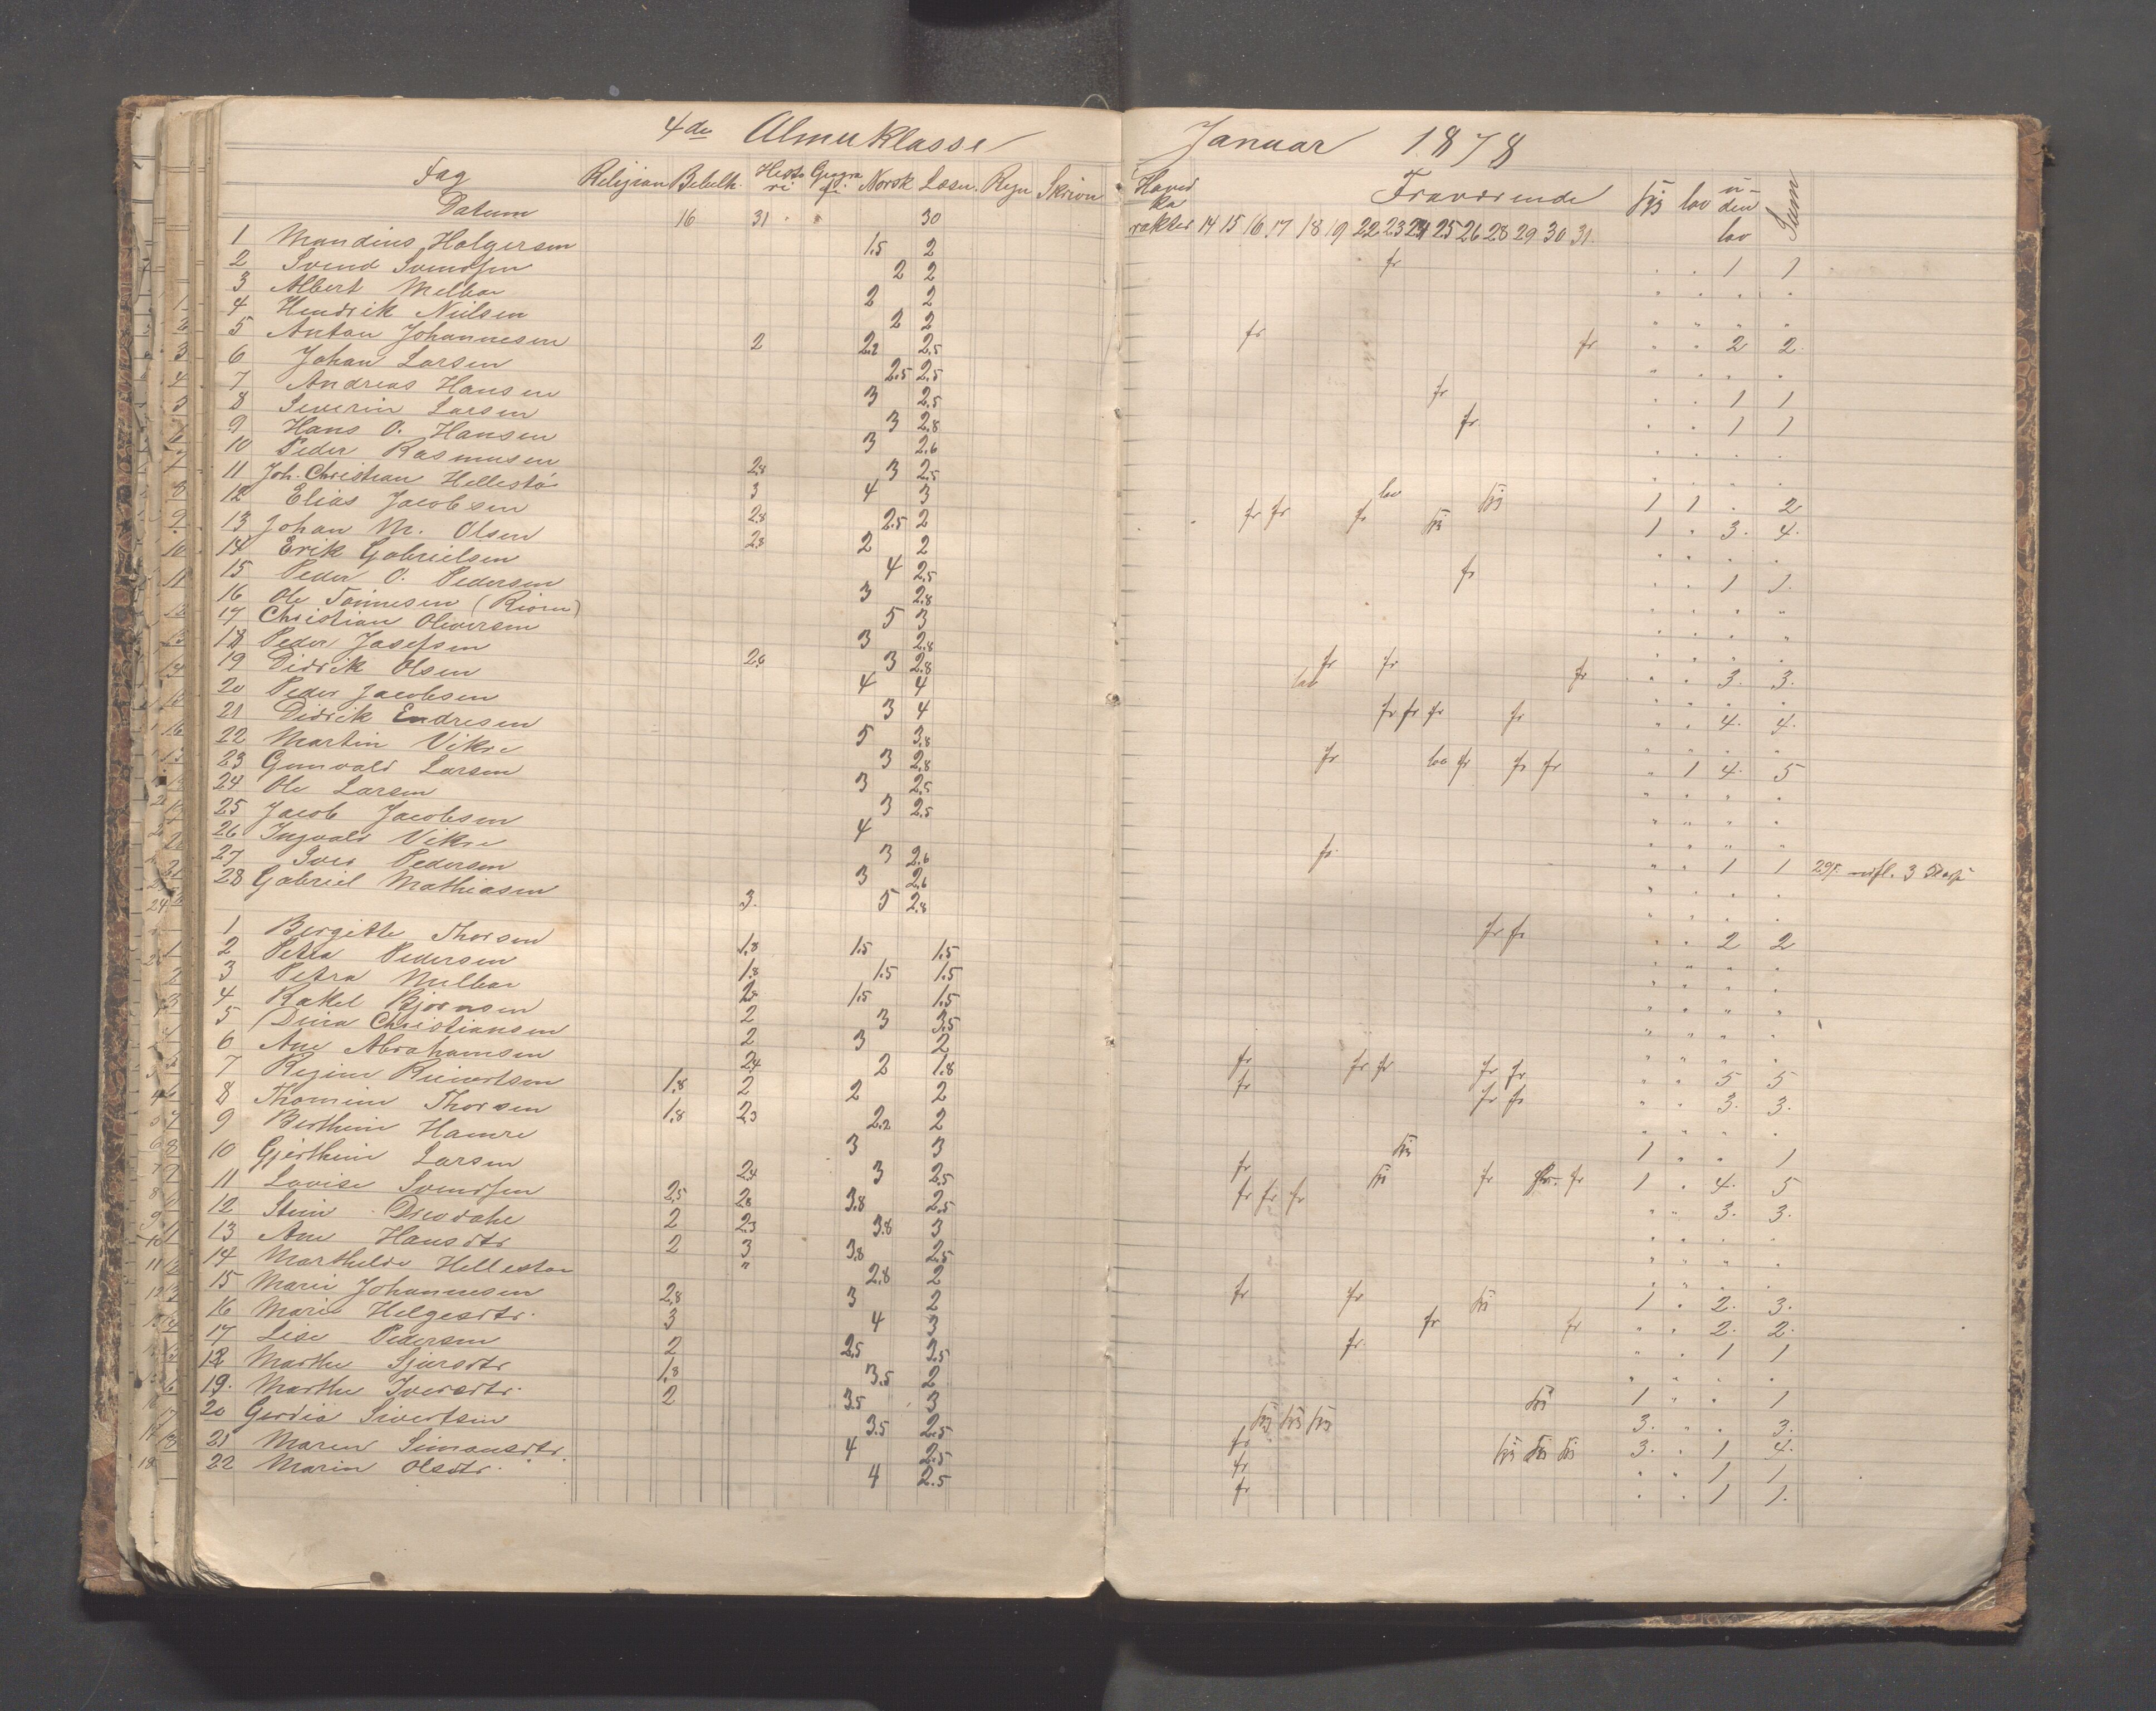 4de Almuklasse
Fag Religion Bibelh. Histori Geografi Norsk Læsn. Regn Skrivn
Datum 16 31 30
1 Mandius Holgersen 1.5 2
2 Svend Svendsen 2 2
3 Albert Melbae 2 2
4 Hendrik Nielsen 2 2
5 Anton Johannesen 2 2.2 2.5
6 Johan Larsen 2.5 2.5
7 Andreas Hansen 3 2.5
8 Severin Larsen 3 2.8
9 Hans O. Hansen 3 2.6
10 Peder Rasmusen 2.8 3 2.5
11 Joh. Christian Hellestø 3 4 3
12 Elias Jacobsen 2.8 2.5 2
13 Johan M. Olsen 2.8 2 2
14 Erik Gabrielsen 4 2.5
15 Peder O. Pedersen 3 2.8
16 Ole Tønnesen 5 3
17 Christian Oliversen 3 2.8
18 Peder Josefsen 2.6 3 2.8
19 Didrik Olsen 4 4
20 Peder Jacobsen 3 4
21 Didrik Endresen 5 3.8
22 Martin Vikre 3 2.8
23 Gunvald Larsen 3 2.5
24 Ole Larsen 3 2.5
25 Jacob Jacobsen 4
26 Ingvald Vikre 3 2.6
27 Iver Pedersen 3 2.6
28 Gabriel Mathiasen 3. 5 2.8
1 Bergitte Thorsen 1.8 1.5 1.5
2 Petra Pedersen 1.8 1.5 1.5
3 Petra Melbae 2.8 1.5 1.5
4 Rakel Bjørnsen 2 3 3.5
5 Dina Christiansen 2 3 2
6 Ane Abrahamsen 2.4 2 1.8
7 Regine Reinertsen 1.8 2 2 2
8 Thomine Thorsen 1.8 2.3 2.2 2
9 Berthine Hamre 3 3
10 Gjerthine Larsen 2.4 3 2.5
11 Lovise Svendsen 2.5 2.8 3.8 2.5
12 Stine 2 2.3 3.8 3
13 Ane Hansdtr 2 3 3.8 2.5
14 Marthilde Hellestøe " 2.8 2
15 Marie Johannesen 2.8 3 2
16 Marie Helgesdtr. 3 4 3
17 Lise Pedersen 2 2.5 3.5
18 Marthe Sjursdtr 1.8 3.5 2
19. Marthe Iversdtr. 2 3.5 3
20 Gordia Sivertsen 3.5 2.5
21 Maren Simonsdtr. 4 2.5
22 Marin Olsdtr. 4 2.5
Januar 1878
Hovedkarakter Fraværende syg lov uden lov Sum
14 15 16 17 18 19 22 23 24 25 26 28 29 30 31.
fr 1 1
fr fr 2 2.
fr 1 1
fr. 1 1
lov syg 1 1 . 2
fr fr fr syg 1 . 3. 4.
fr 1 1.
fr fr fr 3. 3.
lov
fr fr fr fr 4. 4.
fr lov fr fr fr 1 4. 5
fr. 1 1
fr fr 2 2
fr fr fr fr fr 5 5
fr fr fr 3. 3.
syg 1 . . 1
fr syg fr fr 1 . 4. 5
fr fr fr 3. 3.
fr fr syg 1 . 2. 3.
fr fr 2. 2.
fr. 1 1
syg 1 . . 1
syg syg syg 3. . . 3.
fr syg syg syg 3. . 1 4.
fr 1 1
fr 1 1.